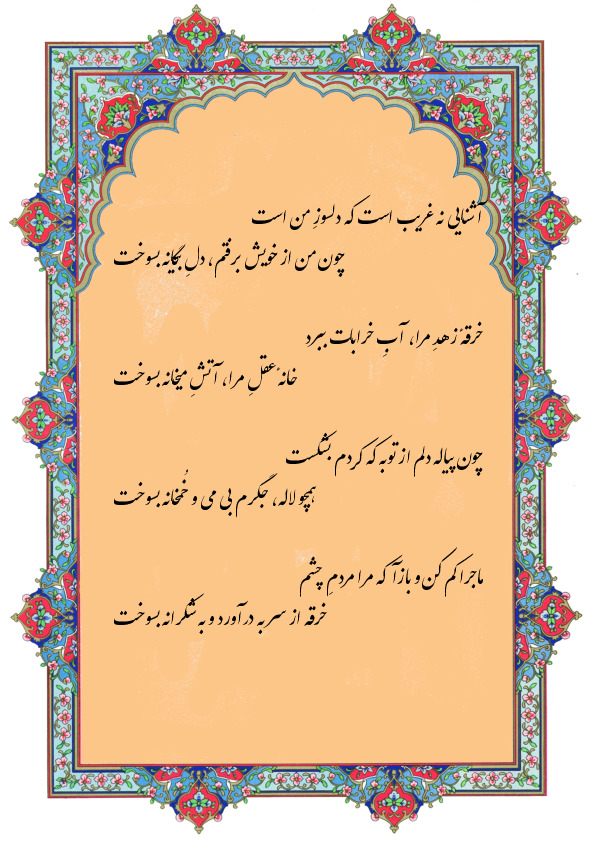 آشنایی نه غریب است که دلسوزِ من است
چون من از خویش برفتم، دلِ بیگانه بسوخت
خرقهٔ زهدِ مرا، آبِ خرابات ببرد
خانهٔ عقلِ مرا، آتشِ میخانه بسوخت
چون پیاله دلم از توبه که کردم بشکست
همچو لاله، جگرم بی می و خُمخانه بسوخت
ماجرا کم کن و بازآ که مرا مردمِ چشم
خرقه از سر به درآورد و به شکرانه بسوخت